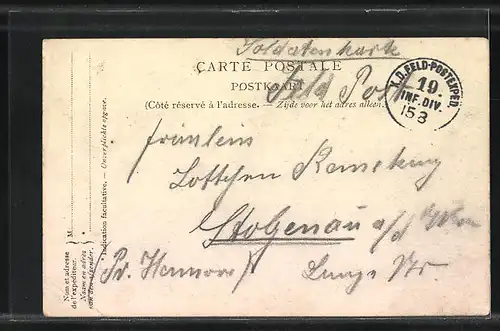 Soldatenkarte
CARTE POSTALE
POSTKAART
Feld Post
(Côté réservé à l'adresse. — Zijde voor het adres alleen.)
K.D. FELD-POSTEXPED.
19.
INF. DIV.
153
Fräulein
Lottchen
Stolzenau a/d
Pr. Hannover
Nom et adresse
de l'expéditeur.
Naam en adres
van den afzender.
M.
* Indication facultative. — Onverplichte opgave.